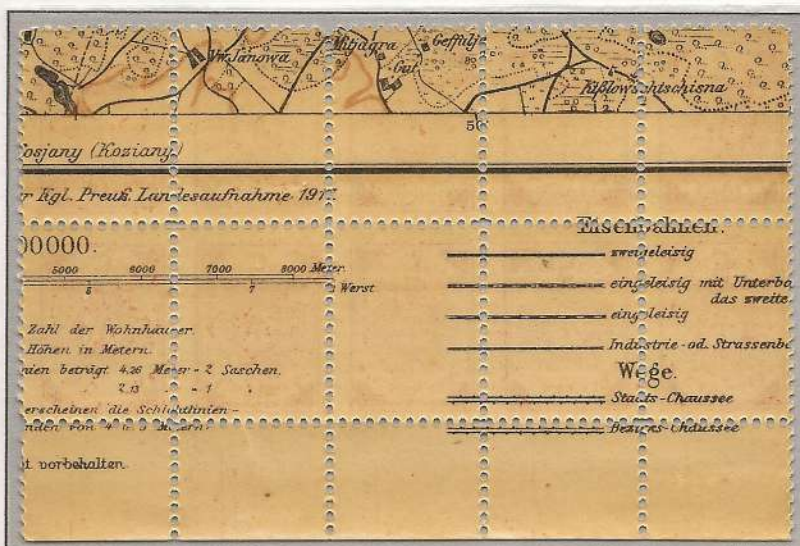 Vw. Janowa
Mitjagra
Gut
Geffulj
Kißlowschtschisna
50
osjany (Koziany)
r Kgl. Preuß. Landesaufnahme 191
00000.
5000 6000 7000 8000 Meter.
6 7 Werst
Zahl der Wohnhäuser.
Höhen in Metern.
nien beträgt 4,26 Meter - 2 Saschen.
2,13 " - 1 "
erscheinen die Schichtlinien -
nden von 4 u. 5 Metern.
t vorbehalten.
Eisenbahnen.
zweigleisig
eingleisig mit Unterba
das zweite
eingleisig
Industrie- od. Strassenba
Wege.
Staats-Chaussee
Bezirks-Chaussee